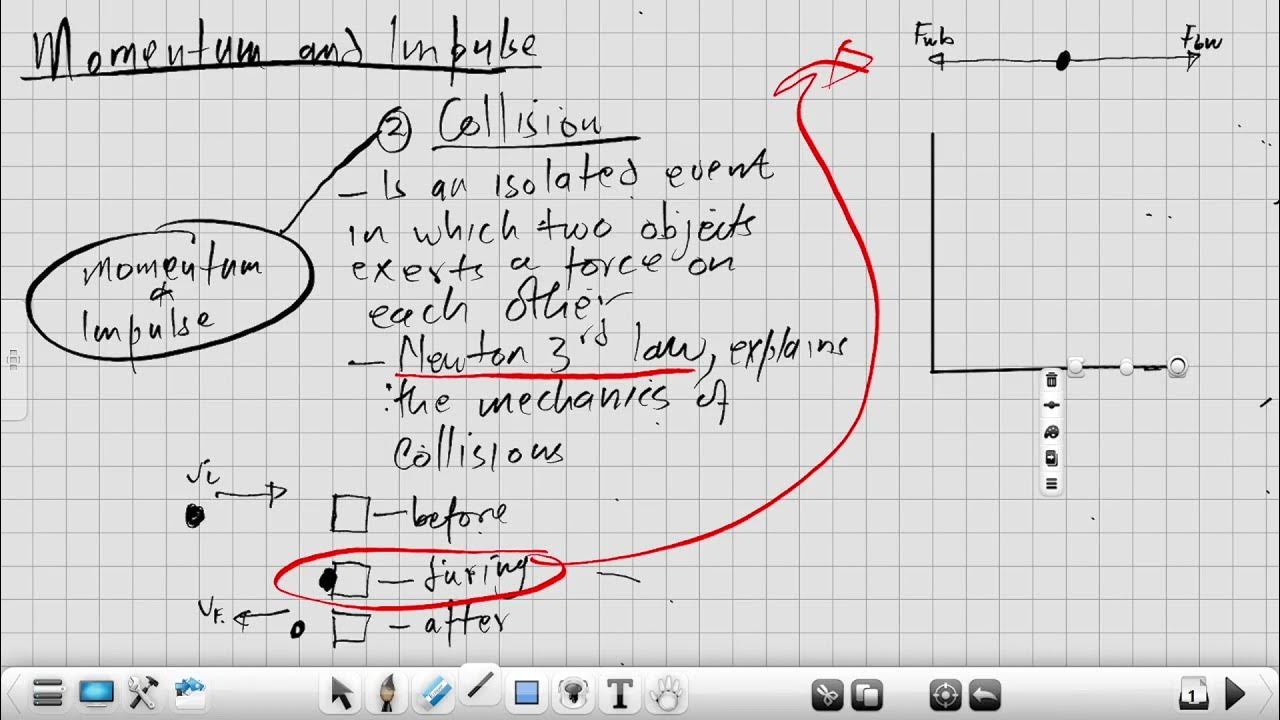 Momentum and Impulse
② Collision
– Is an isolated event
in which two objects
exerts a force on
each other
– Newton 3rd law, explains
the mechanics of
collisions
momentum
&
Impulse
Vi
– before
– during
VF.
– after
Fwb
Fbw
T
1